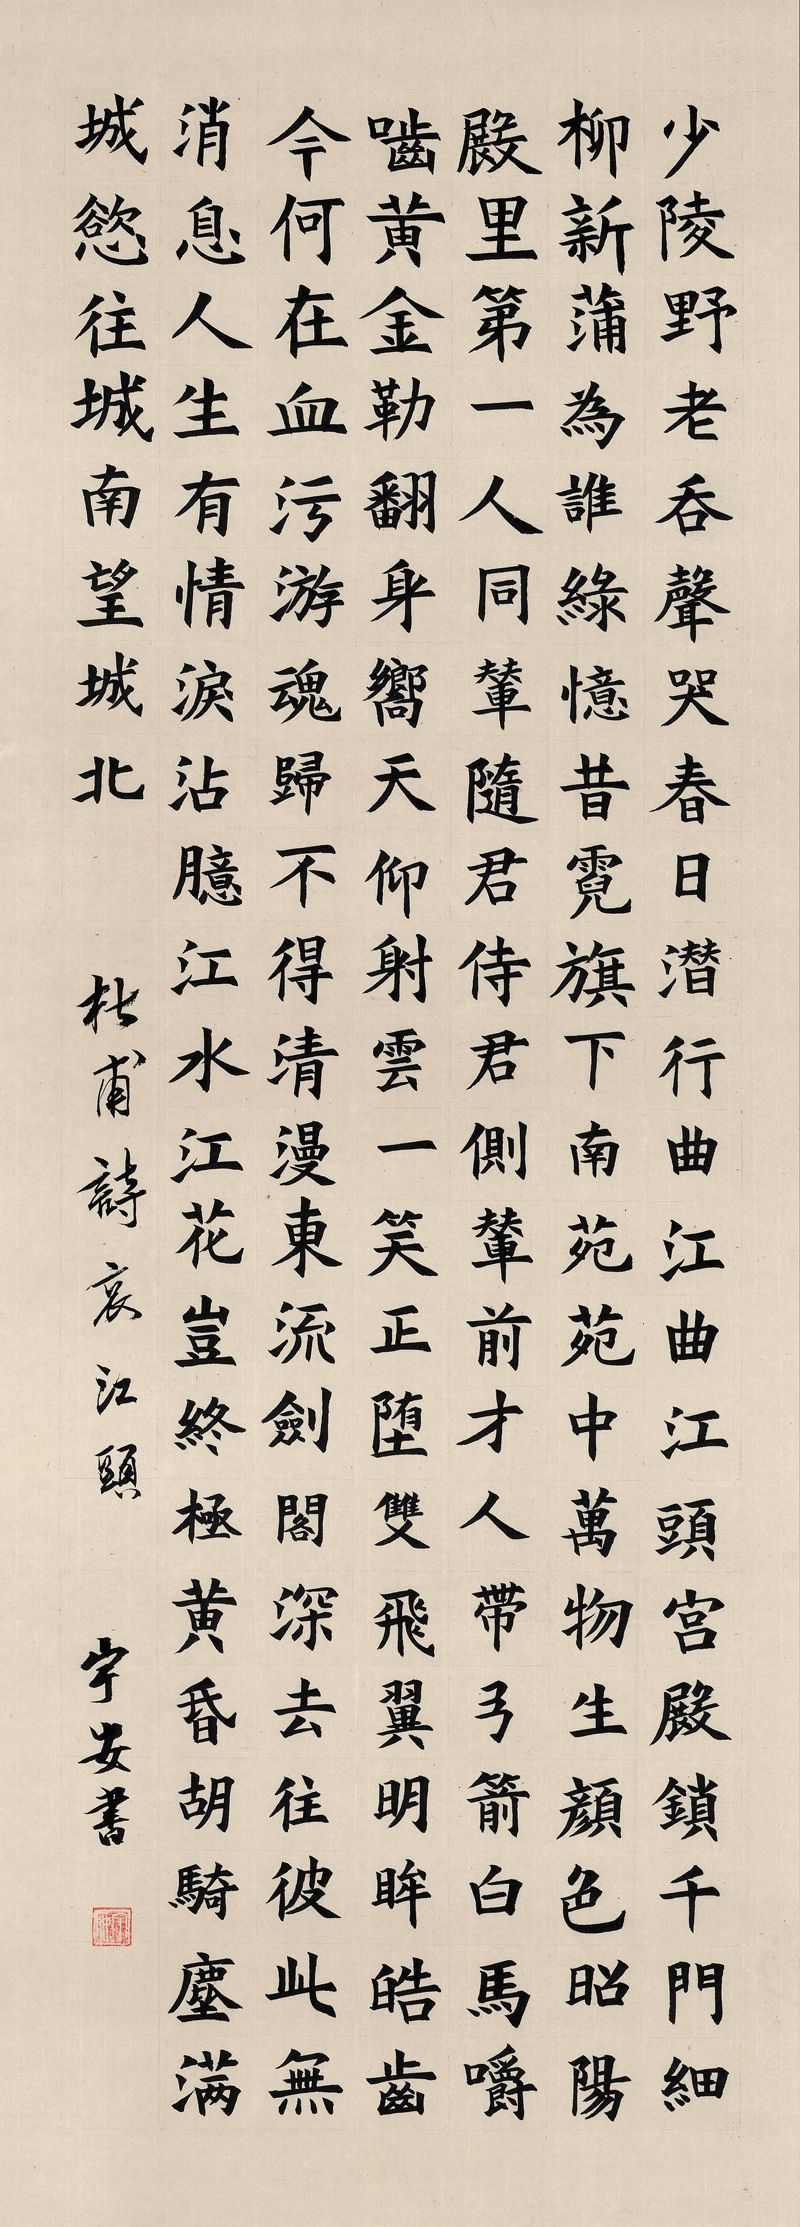 少陵野老吞聲哭春日潛行曲江曲江頭宮殿鎖千門細
柳新蒲為誰綠憶昔霓旗下南苑苑中萬物生顏色昭陽
殿里第一人同輦隨君侍君側輦前才人帶弓箭白馬嚼
嚙黃金勒翻身嚮天仰射雲一笑正墮雙飛翼明眸皓齒
今何在血污游魂歸不得清漫東流劍閣深去往彼此無
消息人生有情淚沾臆江水江花豈終極黃昏胡騎塵滿
城慾往城南望城北
杜甫詩哀江頭
宇安書